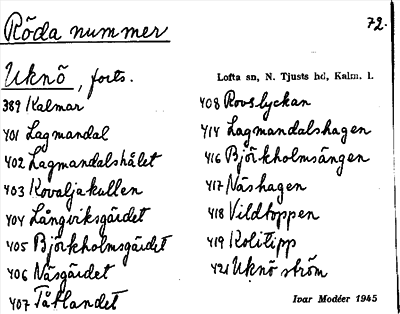 Röda nummer
72.
Uknö, forts.
Lofta sn, N. Tjusts hd, Kalm. l.
389 Kalmar
401 Lagmandal
402 Lagmandalshålet
403 Kovaljakullen
404 Långviksgärdet
405 Björkholmsgärdet
406 Näsgärdet
407 Tåtlandet
408 Rovslyckan
414 Lagmandalshagen
416 Björkholmsängen
417 Näshagen
418 Vildtoppen
419 Kolitipp
421 Uknö ström
Ivar Modéer 1945